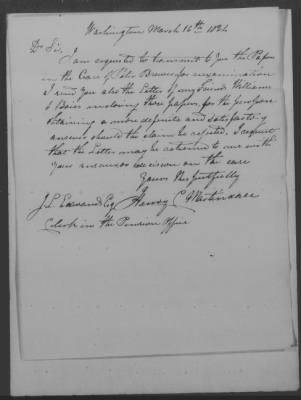 Washington March 16th 1824
Dr Sir,
I am requested to transmit to you the Papers
in the Case of Peter for examination
I send you also the Letter of my friend William
B inclosing those papers, for the purpose
obtaining a more definite and satisfactory
answer should the claim be rejected. I request
that the Letter may be returned to me with
your answer or decision on the case
Yours Respectfully
Henry C Martindale
J L Edwards Esq
Clerk in the Pension Office